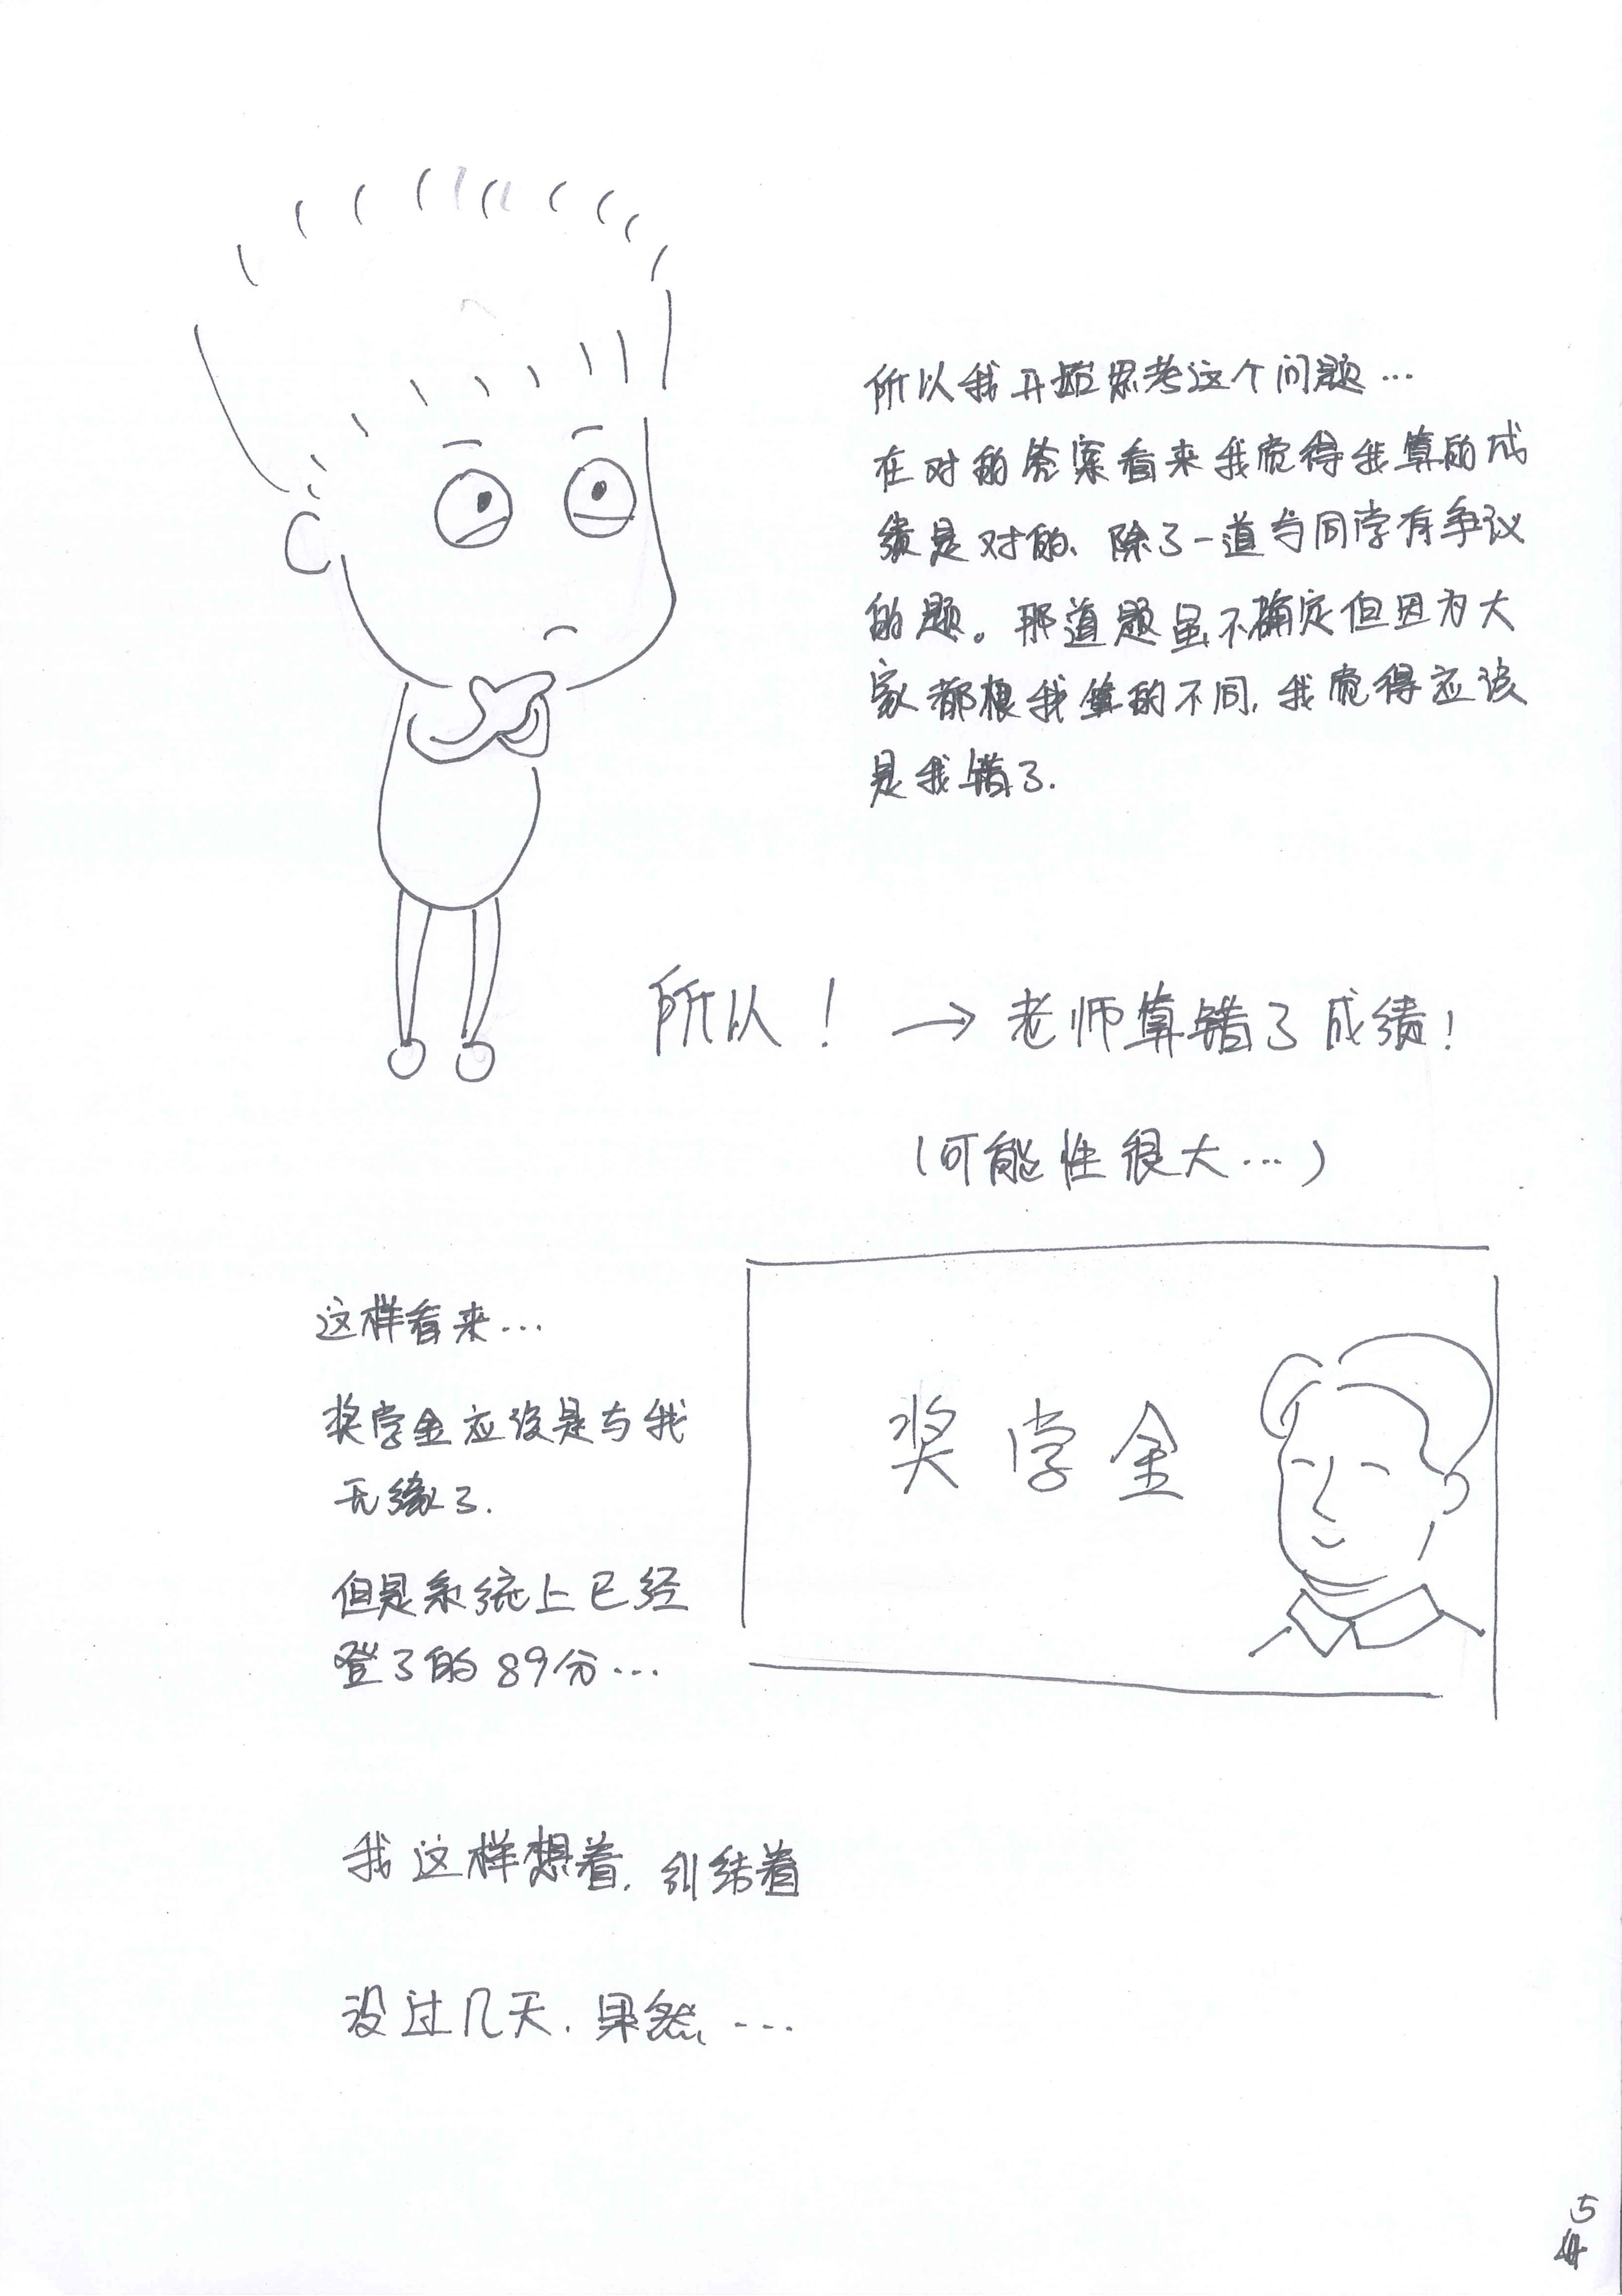 所以我开始思考这个问题…
在对的答案看来我觉得我算的成
绩是对的、除了一道与同学有争议
的题。那道题虽不确定但因为大
家都根我算的不同,我觉得应该
是我错了.
所以! → 老师算错了成绩!
(可能性很大…)
这样看来…
奖学金应该是与我
无缘了.
但是系统上已经
登了的89分…
奖学金
我这样想着.纠结着
没过几天.果然…
5